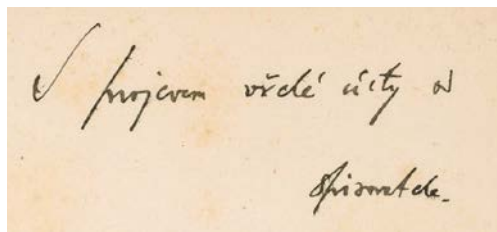 S projevem vřelé úcty od
spisovatele.